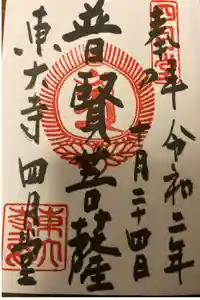 奉拝 令和二年
十月二十四日
普賢菩薩
東大寺 四月堂